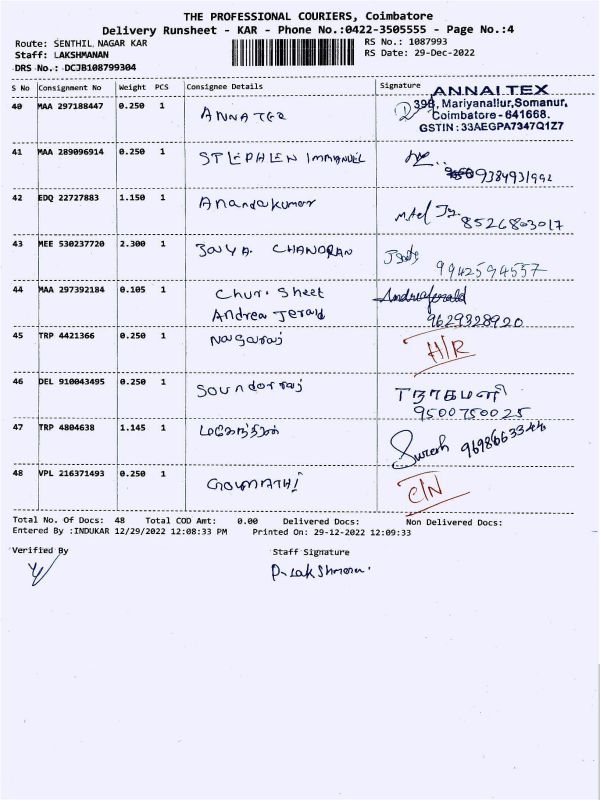 THE PROFESSIONAL COURIERS, Coimbatore
Delivery Runsheet - KAR - Phone No.:0422-3505555 - Page No.:4
Route: SENTHIL NAGAR KAR
RS No.: 1087993
Staff: LAKSHMANAN
RS Date: 29-Dec-2022
DRS No.: DCJB108799304
S No Consignment No Weight PCS Consignee Details Signature
ANNAI TEX
398, Mariyanallur,Somanur,
Coimbatore - 641668.
GSTIN : 33AEGPA7347Q1Z7
40 MAA 297188447 0.250 1 ANNA TEX
41 MAA 289096914 0.250 1 STEPHEN IMMANUEL
9384931992
42 EDQ 22727883 1.150 1 Anandakumar
8526803017
43 MEE 530237720 2.300 1 CHANDRAN
9942594557
44 MAA 297392184 0.105 1 Chur. Sheet
Andrea Jerald Andreajerald
9629328920
45 TRP 4421366 0.250 1 Nagaraj H/R
46 DEL 910043495 0.250 1 Soundarraj நாகமணி
9500750025
47 TRP 4804638 1.145 1 மகேந்திரன் Suresh 9698663344
48 VPL 216371493 0.250 1 GOUMATHI C/N
Total No. Of Docs: 48 Total COD Amt: 0.00 Delivered Docs: Non Delivered Docs:
Entered By :INDUKAR 12/29/2022 12:08:33 PM Printed On: 29-12-2022 12:09:33
Verified By Staff Signature
P. Lakshmana.